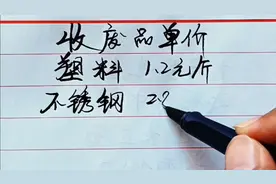 收废品单价
塑料 1.2元斤
不锈钢 2.